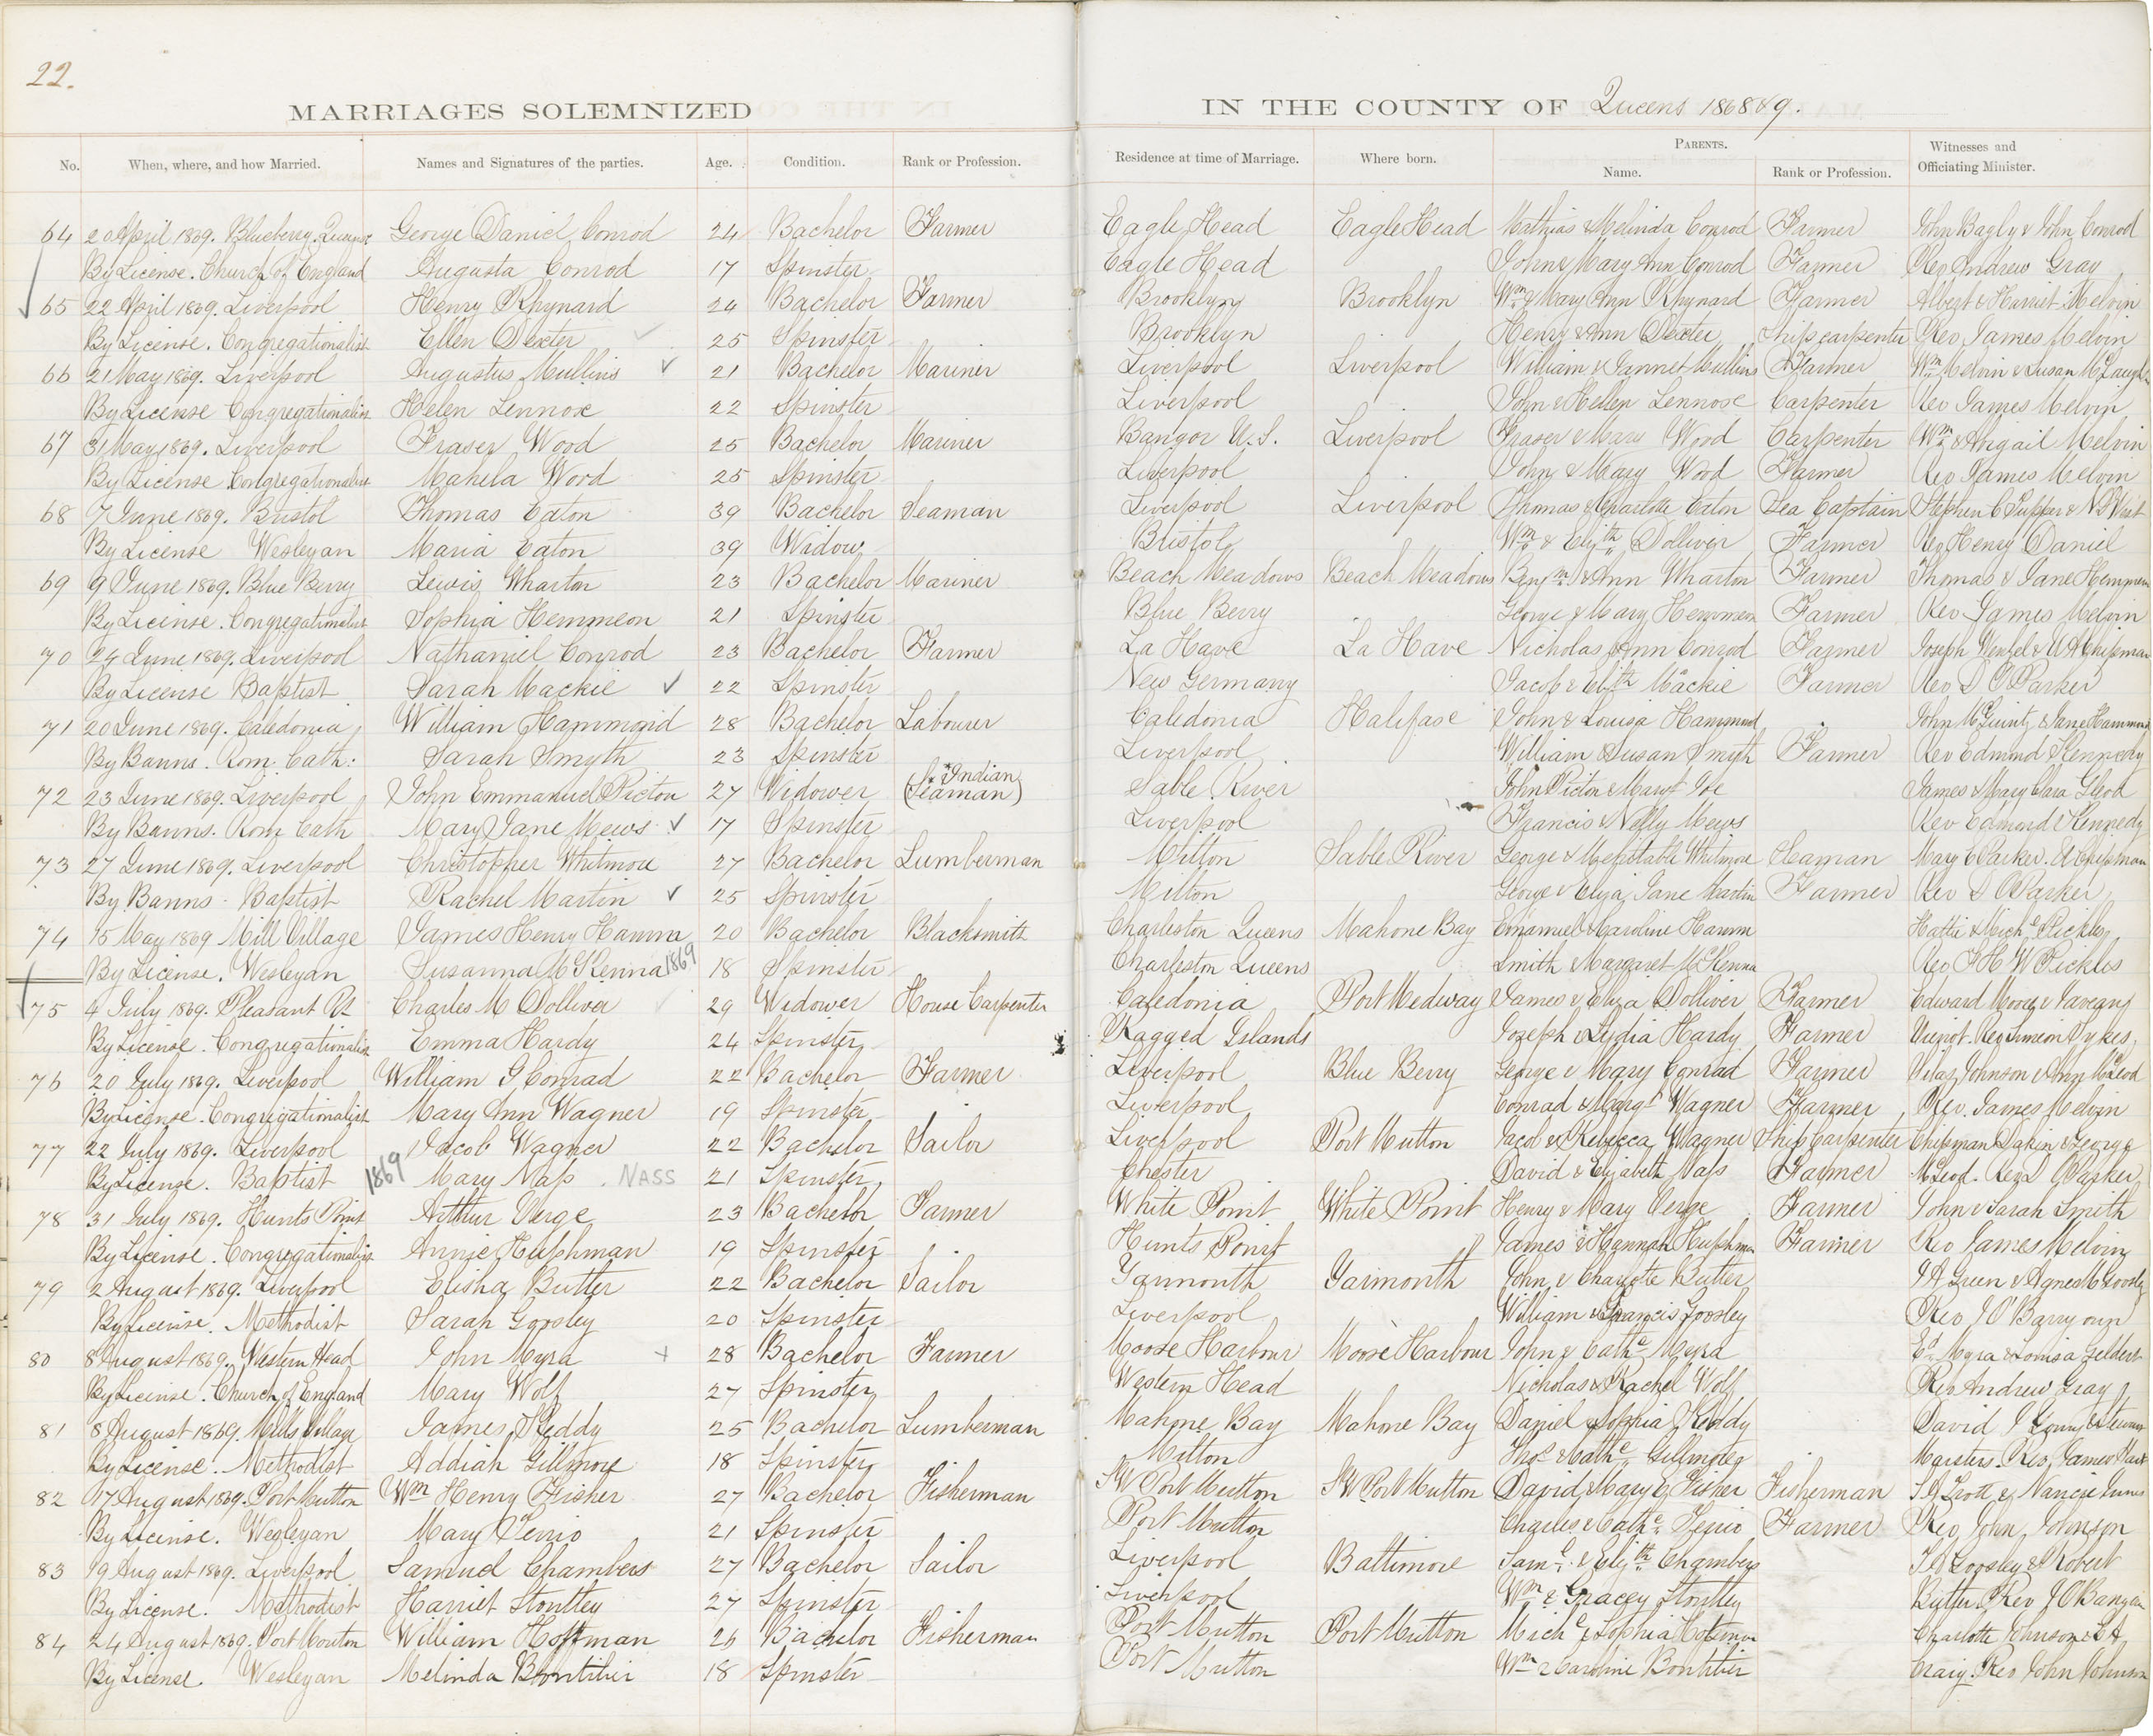 22.
MARRIAGES SOLEMNIZED IN THE COUNTY OF Queens 1868&9.
No. When, where, and how Married. Names and Signatures of the parties. Age. Condition. Rank or Profession. Residence at time of Marriage. Where born. PARENTS. Name. Rank or Profession. Witnesses and Officiating Minister.
64 20 April 1869. Blueberry. Queens George Daniel Conrod 24 Bachelor Farmer Eagle Head Eagle Head Mathias & Melinda Conrod Farmer John Bagly & John Conrod
By License. Church of England Augusta Conrod 17 Spinster Eagle Head John & Mary Ann Conrod Farmer Rev Andrew Gray
65 22 April 1869. Liverpool Henry Rhynard 24 Bachelor Farmer Brooklyn Brooklyn Wm & Mary Ann Rhynard Farmer Albert & Harriet Melvin
By License. Congregationalist Ellen Dexter 25 Spinster Brooklyn Henry & Ann Dexter Ship carpenter Rev James Melvin
66 21 May 1869. Liverpool Augustus Mullins 21 Bachelor Mariner Liverpool Liverpool William & Jannet Mullins Farmer Wm Melvin & Susan
By License Congregationalist Helen Lennox 22 Spinster Liverpool John & Hellen Lennox Carpenter Rev James Melvin
67 31 May 1869. Liverpool Fraser Wood 25 Bachelor Mariner Bangor U.S. Liverpool Fraser & Mary Wood Carpenter Wm & Abigail Melvin
By License Congregationalist Mahela Wood 25 Spinster Liverpool John & Mary Wood Farmer Rev James Melvin
68 7 June 1869. Bristol Thomas Eaton 39 Bachelor Seaman Liverpool Liverpool Thomas & Charlotte Eaton Sea Captain Stephen C Tupper &
By License Wesleyan Maria Eaton 39 Widow Bristol Wm & Elizth Dolliver Farmer Rev Henry Daniel
69 9 June 1869. Blue Berry Lewis Wharton 23 Bachelor Mariner Beach Meadows Beach Meadows Benjn & Ann Wharton Farmer Thomas & Jane Hemmeon
By License. Congregationalist Sophia Hemmeon 21 Spinster Blue Berry George & Mary Hemmeon Farmer Rev James Melvin
70 24 June 1869. Liverpool Nathaniel Conrod 23 Bachelor Farmer La Have La Have Nicholas & Ann Conrod Farmer Joseph Wentzel & Chipman
By License Baptist Sarah Mackie 22 Spinster New Germany Jacob & Elizth Mackie Farmer Rev D O Parker
71 20 June 1869. Caledonia William Hammond 28 Bachelor Labourer Caledonia Halifax John & Louisa Hammond John McGuinty & Jane Hammond
By Banns. Rom. Cath: Sarah Smyth 23 Spinster Liverpool William & Susan Smyth Farmer Rev Edmund Kennedy
72 23 June 1869. Liverpool John Emmanuel Picton 27 Widower (Indian Seaman) Sable River John Picton & Mary Joe James & Mary Clara Glood
By Banns. Rom. Cath Mary Jane Mews 17 Spinster Liverpool Francis & Nelly Mews Rev Edmund Kennedy
73 27 June 1869. Liverpool Christopher Whitmore 27 Bachelor Lumberman Milton Sable River George & Mehitable Whitmore Seaman Mary C Parker. A Chipman
By Banns. Baptist Rachel Martin 25 Spinster Milton George & Eliza Jane Martin Farmer Rev D O Parker
74 15 May 1869 Mill Village James Henry Hamm 20 Bachelor Blacksmith Charleston Queens Mahone Bay Emanuel & Caroline Hamm Hattie & Mich. Pickles
By License. Wesleyan Susanna McKenna 1869 18 Spinster Charleston Queens Smith & Margaret McKenna Rev F H W Pickles
75 4 July 1869. Pleasant Rr Charles M Dolliver 29 Widower House Carpenter Caledonia Port Medway James & Eliza Dolliver Farmer Edward Moore &
By License. Congregationalist Emma Hardy 24 Spinster Ragged Islands Joseph & Lydia Hardy Farmer Vieniot. Rev Simeon Sykes
76 20 July 1869. Liverpool William G Conrad 22 Bachelor Farmer Liverpool Blue Berry George & Mary Conrad Farmer Silas Johnson & Amy McLeod
By License. Congregationalist Mary Ann Wagner 19 Spinster Liverpool Conrad & Margt Wagner Farmer Rev. James Melvin
77 22 July 1869. Liverpool Jacob Wagner 22 Bachelor Sailor Liverpool Port Mutton Jacob & Rebecca Wagner Ship Carpenter Chipman Dakin & George
By License. Baptist 1869 Mary Nass. NASS 21 Spinster Chester David & Elizabeth Nass Farmer McLeod. Rev D O Parker
78 31 July 1869. Hunts Point Arthur Verge 23 Bachelor Farmer White Point White Point Henry & Mary Verge Farmer John & Sarah Smith
By License. Congregationalist Annie Huphman 19 Spinster Hunts Point James & Hannah Huphman Farmer Rev James Melvin
79 2 August 1869. Liverpool Elisha Butler 22 Bachelor Sailor Yarmouth Yarmouth John & Charlotte Butler J A Green & Agnes M Goosley
By License. Methodist Sarah Goosley 20 Spinster Liverpool William & Francis Goosley Rev J O'Barryoun
80 8 August 1869. Western Head John Myra 28 Bachelor Farmer Moose Harbour Moose Harbour John & Cathe Myra Ed. Myra & Louisa Geldert
By License. Church of England Mary Wolf 27 Spinster Western Head Nicholas & Rachel Wolf Rev Andrew Gray
81 8 August 1869. Mills Village James Reddy 25 Bachelor Lumberman Mahone Bay Mahone Bay Daniel & Sophia J Reddy David J
By License. Methodist Addiah Gillmore 18 Spinster Milton Thos & Cathe Gillmore Marsters. Rev. James
82 17 August 1869. Port Mutton Wm Henry Fisher 27 Bachelor Fisherman SW Port Mutton SW Port Mutton David & Mary E Fisher Fisherman S. A. Scott & Nancie Innes
By License. Wesleyan Mary Terrio 21 Spinster Port Mutton Charles & Cathe Terrio Farmer Rev John Johnson
83 19 August 1869. Liverpool Samuel Chambers 27 Bachelor Sailor Liverpool Baltimore Saml & Elizth Chambers Goosley & Robert
By License. Methodist Harriet Stouttey 27 Spinster Liverpool Wm & Gracey Stouttey Butler. Rev J O'Baryoun
84 24 August 1869. Port Mouton William Hoffman 26 Bachelor Fisherman Port Mutton Port Mutton Michl & Sophia Charlotte Johnson & L A
By License Wesleyan Melinda Bontilier 18 Spinster Port Mutton Wm & Caroline Bontilier Craig. Rev John Johnson